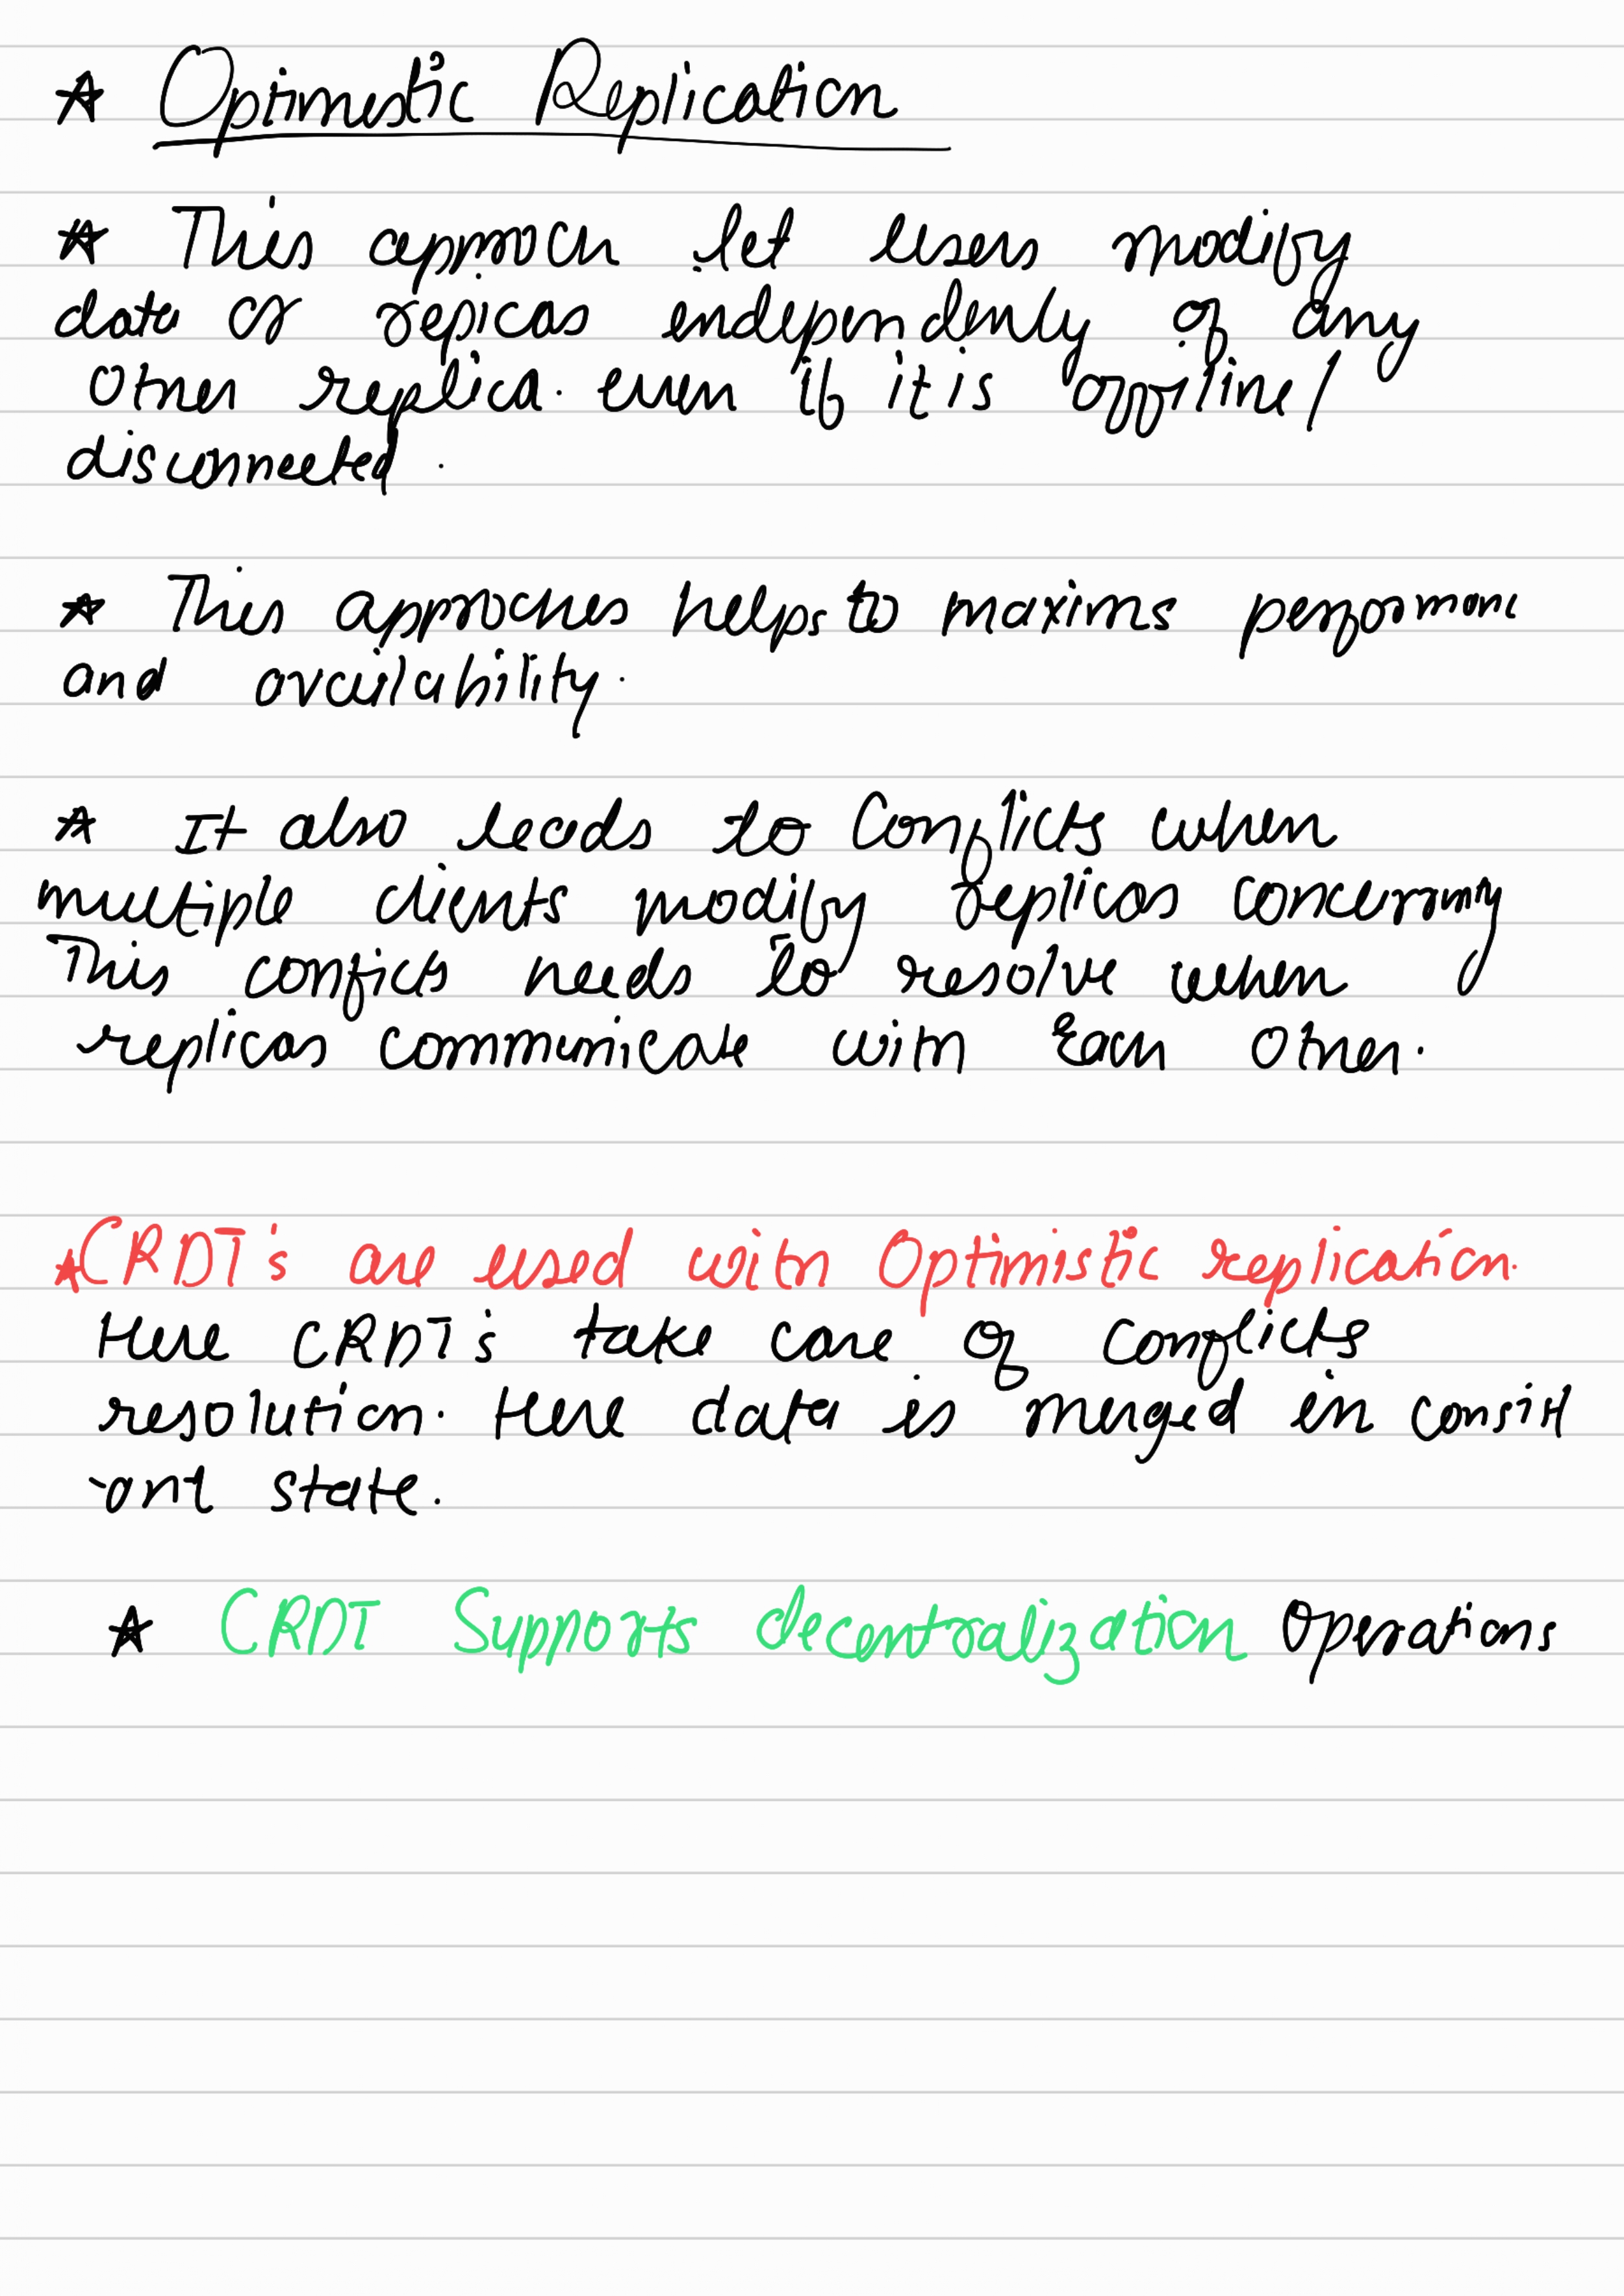 ★ Optimistic Replication
★ This approach let users modify
data of replicas independently of any
other replica. even if it is offline/
disconnected.
★ This approches helps to maxims performanc
and availability.
★ It also leads to Conflicts when
multiple clients modify replicas
This conflicts needs to resolve when
replicas communicate with Each other.
★CRDT's are used with Optimistic replication.
Here CRDT's take care of conflicts
resolution. Here data is merged in consist
-ant state.
★ CRDT Supports decentralization Operations